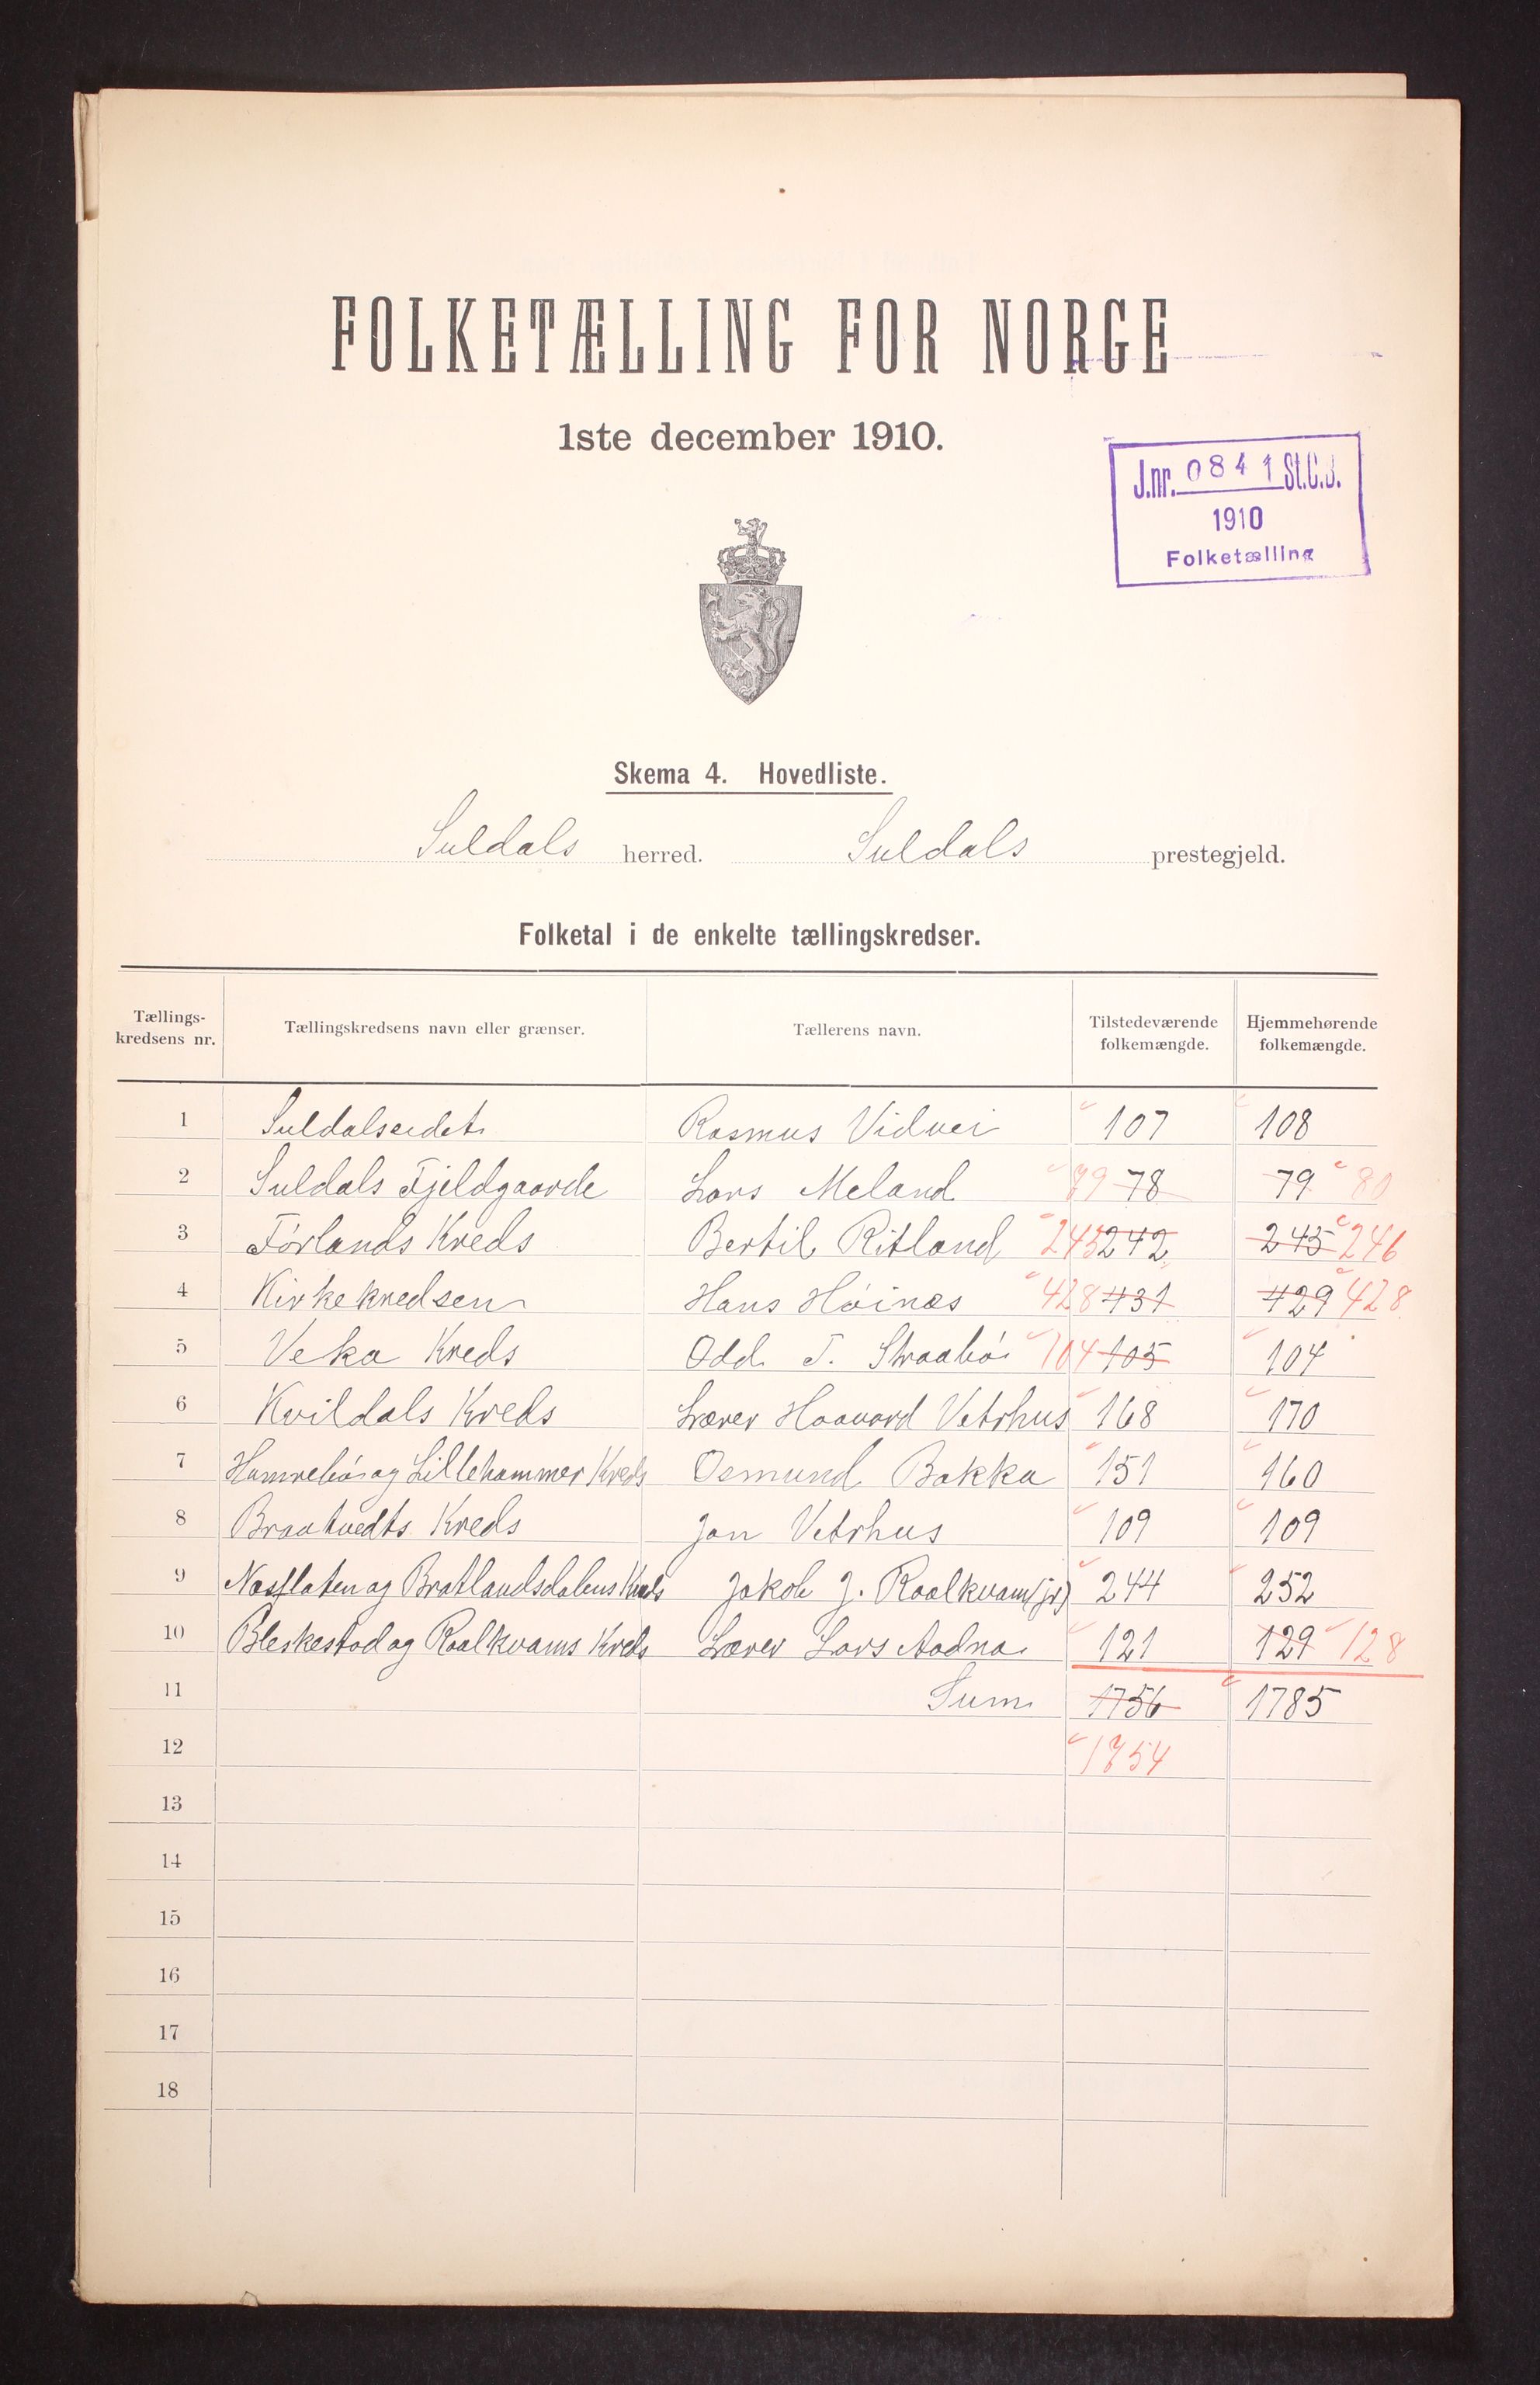 FOLKETÆLLING FOR NORGE
1ste december 1910.
J.nr. 0841 St.C.B.
1910
Folketælling
Skema 4. Hovedliste.
Suldals herred. Suldals prestegjeld.
Folketal i de enkelte tællingskredser.
Tællings-kredsens nr. Tællingskredsens navn eller grænser. Tællerens navn. Tilstedeværende folkemængde. Hjemmehørende folkemængde.
1 Suldalseidet Rasmus Vidvei 107 108
2 Suldals Fjeldgaarde Lars Meland 79 78 79 80
3 Førlands Kreds Bertil Ritland 243 242 245 246
4 Kirkekredsen Hans Høines 428 431 429 428
5 Veka Kreds Odd T. Straabø 104 105 104
6 Kvildals Kreds Lærer Haavard Vetrhus 168 170
7 Hamrebø og Lillehammer Kreds Osmund Bakka 151 160
8 Braatvedts Kreds Jan Vetrhus 109 109
9 Nesflaten og Bratlandsdalens Kreds Jakob J. Roalkvam (jr) 244 252
10 Bleskestad og Roalkvams Kreds Lærer Lars Aadna 121 129 128
11 Sum 1756 1785
12 1754
13
14
15
16
17
18